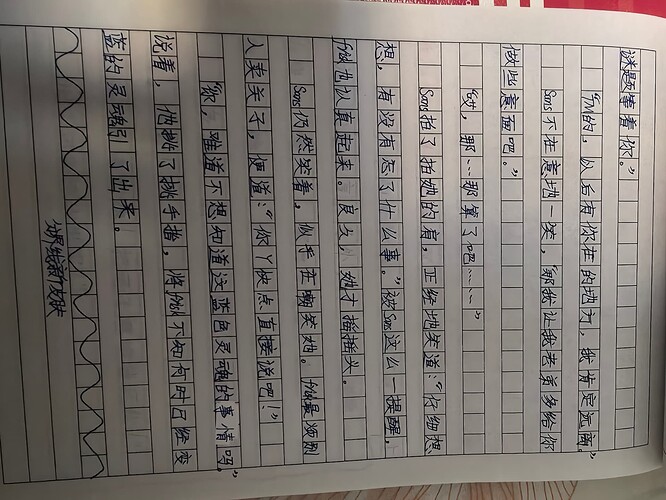 谜题等着你。”
“FM的，以后有你在的地方，我肯定远离。”
Sans不在意地一笑，“那我让我老弟多给你
做些意面吧。”
“哎，那…那算了吧……”
Sans拍了拍她的肩，正经地笑道：“仔细想
想，有没有忘了什么事。”被Sans这么一提醒，
也认真起来。良久，她才摇摇头。
Sans仍然笑着，似乎在嘲笑她。最烦别
人卖关子，便道：“你丫快点直接说吧！”
“你，难道不想知道这蓝色灵魂的事情吗。”
说着，他挑了挑手指，将不知何时已经变
蓝的灵魂引了出来。
分界线新皮肤